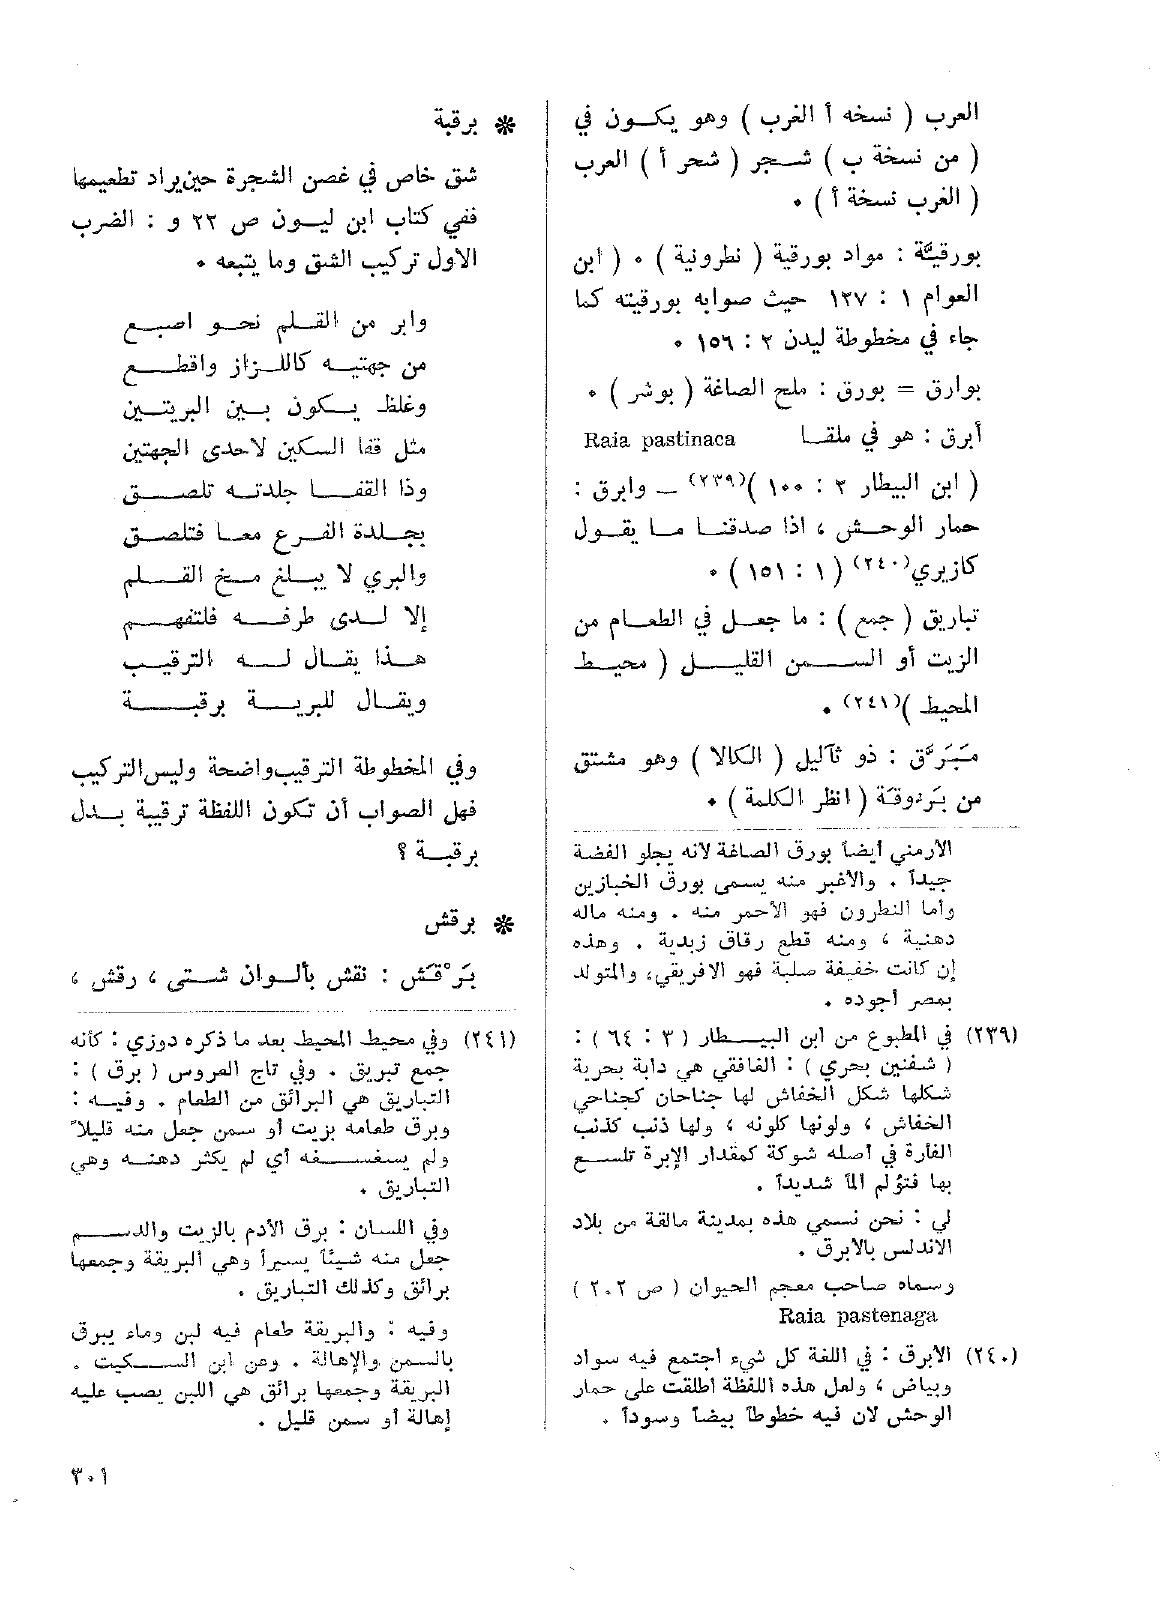 العرب ( نسخه أ الغرب ) وهو يكون في
( من نسخة ب ) شجر ( شحر أ ) العرب
( الغرب نسخة أ ) .
بورقيّة : مواد بورقية ( نطرونية ) . ( ابن
العوام ١ : ١٢٧ حيث صوابه بورقيته كما
جاء في مخطوطة ليدن ٢ : ١٥٦ .
بوارق = بورق : ملح الصاغة ( بوشر ) .
أبرق : هو في ملقا Raia pastinaca
( ابن البيطار ٢ : ١٠٠ )(٢٣٩) ـ وابرق :
حمار الوحش ، اذا صدقنا ما يقول
كازيري(٢٤٠) ( ١ : ١٥١ ) .
تباريق ( جمع ) : ما جعل في الطعام من
الزيت أو السمن القليل ( محيط
المحيط )(٢٤١) .
مَبَرَّق : ذو ثآليل ( الكالا ) وهو مشتق
من بَرُوقَة ( انظر الكلمة ) .
الأرمني أيضاً بورق الصاغة لأنه يجلو الفضة
جيداً . والأغبر منه يسمى بورق الخبازين
وأما النطرون فهو الأحمر منه . ومنه ماله
دهنية ، ومنه قطع رقاق زبدية . وهذه
إن كانت خفيفة صلبة فهو الافريقي، والمتولد
بمصر أجوده .
(٢٣٩) في المطبوع من ابن البيطار ( ٣ : ٦٤ ) :
( شفنين بحري ) : الغافقي هي دابة بحرية
شكلها شكل الخفاش لها جناحان كجناحي
الخفاش ، ولونها كلونه ، ولها ذنب كذنب
الفأرة في أصله شوكة كمقدار الإبرة تلسع
بها فتؤلم ألماً شديداً .
لي : نحن نسمي هذه بمدينة مالقة من بلاد
الاندلس بالأبرق .
وسماه صاحب معجم الحيوان ( ص ٢٠٢ )
Raia pastenaga
(٢٤٠) الأبرق : في اللغة كل شيء اجتمع فيه سواد
وبياض ، ولعل هذه اللفظة أطلقت على حمار
الوحش لأن فيه خطوطاً بيضاً وسوداً .
* برقبة
شق خاص في غصن الشجرة حين يراد تطعيمها
ففي كتاب ابن ليون ص ٢٢ و : الضرب
الأول تركيب الشق وما يتبعه .
وابر من القلم نحو اصبع
من جهتيه كاللزاز واقطع
وغلظ يكون بين البريتين
مثل قفا السكين لاحدى الجهتين
وذا القفا جلدته تلصق
بجلدة الفرع معا فتلصق
والبري لا يبلغ مخ القلم
إلا لدى طرفه فلتفهم
هذا يقال له الترقيب
ويقال للبرية برقبة
وفي المخطوطة الترقيب واضحة وليس التركيب
فهل الصواب أن تكون اللفظة ترقيبة بدل
برقبة ؟
* برقش
بَرْقَش : نقش بألوان شتى ، رقش ،
(٢٤١) وفي محيط المحيط بعد ما ذكره دوزي : كأنه
جمع تبريق . وفي تاج العروس ( برق ) :
التباريق هي البرائق من الطعام . وفيه :
وبرق طعامه بزيت أو سمن جعل منه قليلاً
ولم يسغسغه أي لم يكثر دهنه وهي
التباريق .
وفي اللسان : برق الأدم بالزيت والدسم
جعل منه شيئاً يسيراً وهي البريقة وجمعها
برائق وكذلك التباريق .
وفيه : والبريقة طعام فيه لبن وماء يبرق
بالسمن والإهالة . وعن ابن السكيت .
البريقة وجمعها برائق هي اللبن يصب عليه
إهالة أو سمن قليل .
٣٠١